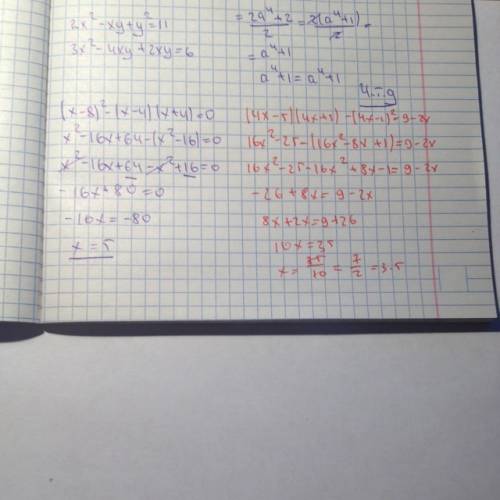 2x²-xy+y²=11
3x²-4xy+2xy=6
= (2a⁴+2)/2 = 2(a⁴+1)/2 =
= a⁴+1
a⁴+1=a⁴+1
(x-8)²-(x-4)(x+4)=0
x²-16x+64-(x²-16)=0
x²-16x+64-x²+16=0
-16x+80=0
-16x=-80
x=5
(4x-5)(4x+5)-(4x-1)²=9-2x
16x²-25-(16x²-8x+1)=9-2x
16x²-25-16x²+8x-1=9-2x
-26+8x=9-2x
8x+2x=9+26
10x=35
x=35/10=7/2=3.5